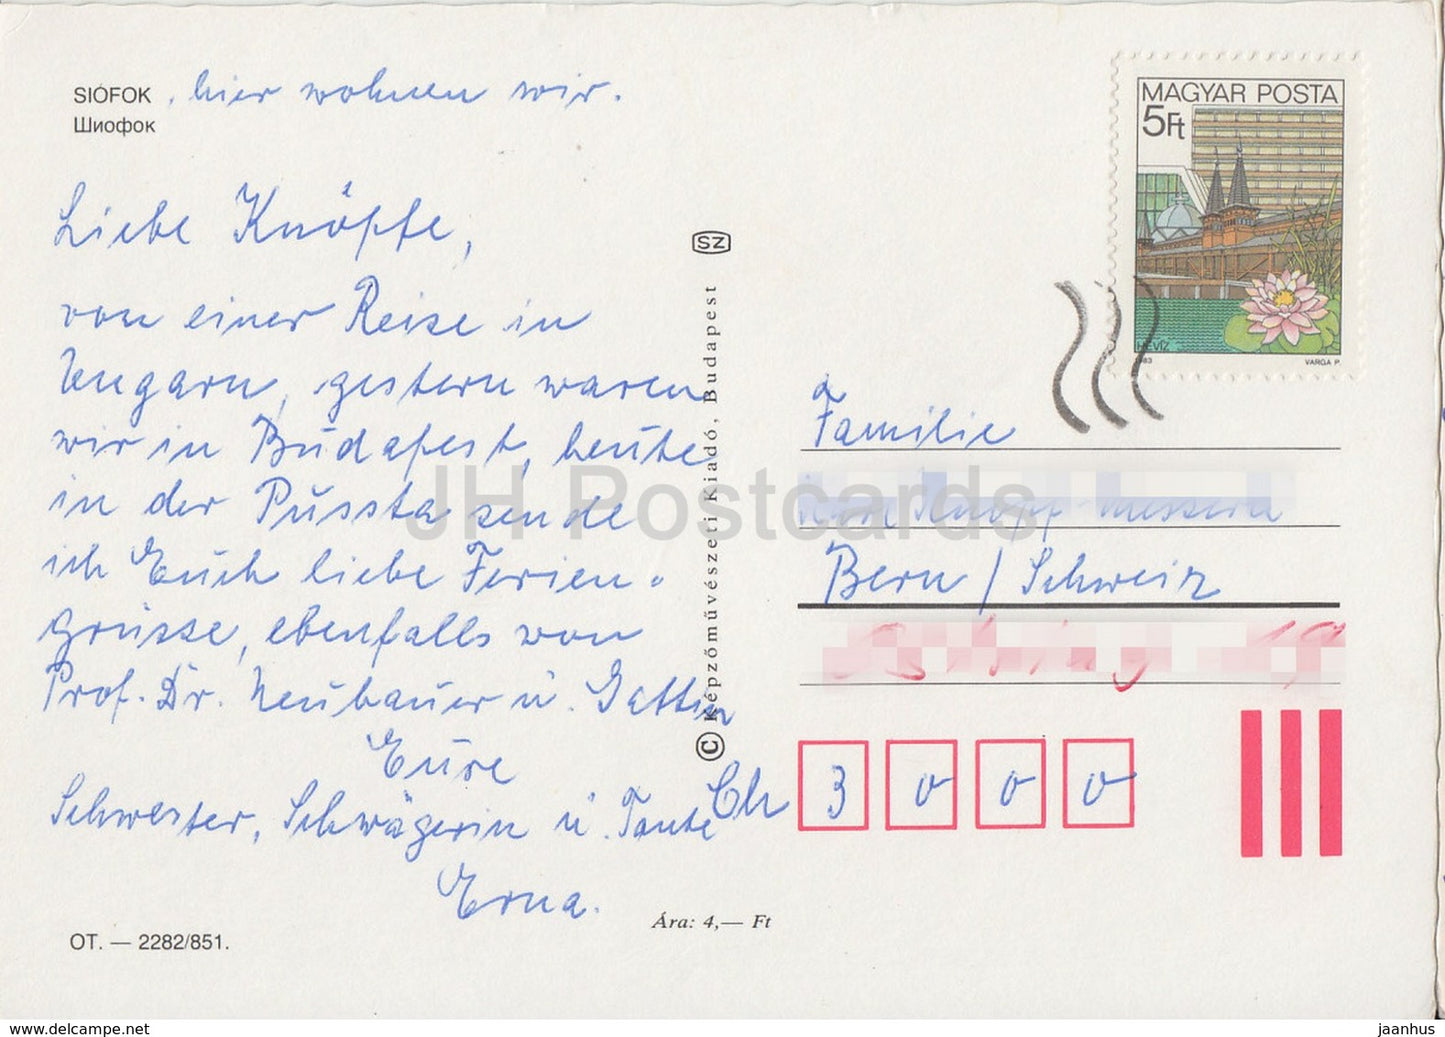 SIÓFOK, hier wohnen wir.
Шиофок
Liebe Knöpfe,
von einer Reise in
Ungarn, gestern waren
wir in Budapest, heute
in der Pussta sende
ich Euch liebe Ferien-
grüsse, ebenfalls von
Prof. Dr. Neubauer u. Gattin
Eure
Schwester, Schwägerin u. Tante
Erna.
OT. — 2282/851.
Ára: 4,— Ft
SZ
© Képzőművészeti Kiadó, Budapest
JH Postcards
MAGYAR POSTA
5Ft
HÉVÍZ
1983 VARGA P.
Familie
Bern / Schweiz
Ch 3 0 0 0
www.delcampe.net
jaanhus